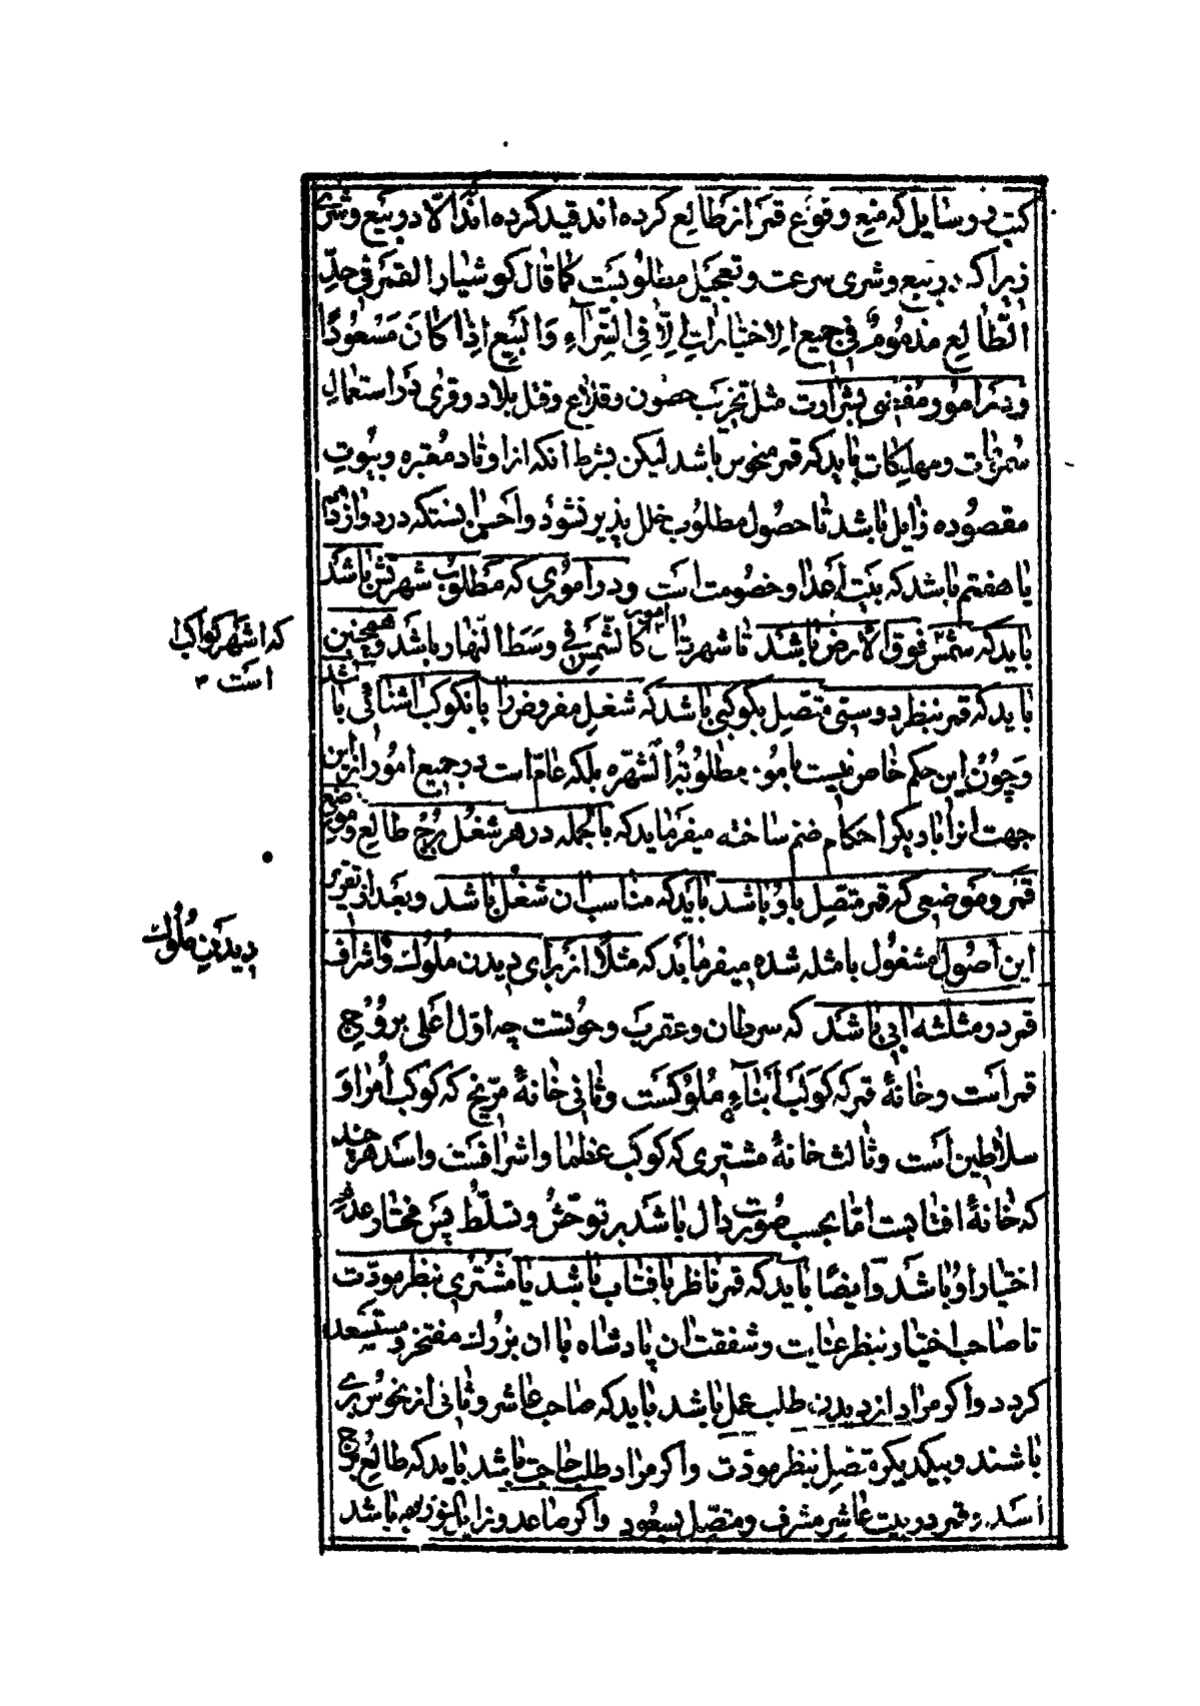 کتب و رسایل که منع وقوع قمر از طالع کرده‌اند قید کرده‌اند الّا در بیع و شری
زیرا که در بیع و شری سرعت و تعجیل مطلوبست کما قال کوشیار القمر فی حدّ
الطّالع مذمومٌ فی جمیع الاختیارات الّا فی الشّرآء و البیع اذا کان مسعودًا
و در امور مقتضی بشرارت مثل تخریب حصون و قلاع و قتل بلاد و قری در استعمال
سُمّیّات و مهلکات باید که قمر منحوس باشد لیکن بشرط انکه از اوتاد معتبره و بیوت
مقصوده زایل باشد تا حصول مطلوب خلل پذیر نشود و احسن انستکه در دوازدهم
یا هفتم باشد که بیت اعدا و خصومت است و در اموری که مطلوب شهرتش باشد
باید که شمس فوق الارض باشد تا شهرت امور کالشّمس فی وسط النّهار باشد و همچنین
که اشهر کواکب
است
باید که قمر بنظر دوستی متصل بکوکبی باشد که شغل مفروض را بانکوکب اشنائی باشد
و چون این حکم خاص نیست بامور مطلوبة الشهره بلکه عامّ است در جمیع امور ازین
جهت انرا با دیگر احکام ضم ساخته میفرماید که بالجمله در هر شغل برج طالع و موضع
قمر و موضعی که قمر متصل باو باشد باید که مناسب ان شغل باشد و بعد از تقریر
این اصول مشغول بامثله شده میفرماید که مثلًا از برای دیدن ملوک و اشراف
دیدن ملوک
قمر در مثلثه ابی باشد که سرطان و عقرب و حوتست چه اوّل اعلی بروج
قمر است و خانهٔ قمر که کوکب ابنآء ملوکست و ثانی خانهٔ مرّیخ که کوکب امرا و
سلاطین است و ثالث خانهٔ مشتری که کوکب عظما و اشرافست و اسد هر چند
که خانهٔ افتابست امّا بحسب صورت دال باشد بر توحّش و تسلّط پس مختار عدم
اختیار او باشد و ایضًا باید که قمر ناظر بافتاب باشد یا مشتری بنظر مودّت
تا صاحب اختیار بنظر عنایت و شفقت ان پادشاه یا ان بزرگ مفتخر و مستسعد
کردد و اکر مراد از دیدن طلب عمل باشد باید که صاحب عاشر و ثانی از نحوس بری
باشند و بیکدیکر متصل بنظر مودّت و اکر مراد طلب حاجت باشد باید که طالع برج
اسد و قمر در بیت عاشر مشرف و متصل بسعود و اکر صاعد و زاید النور باشد